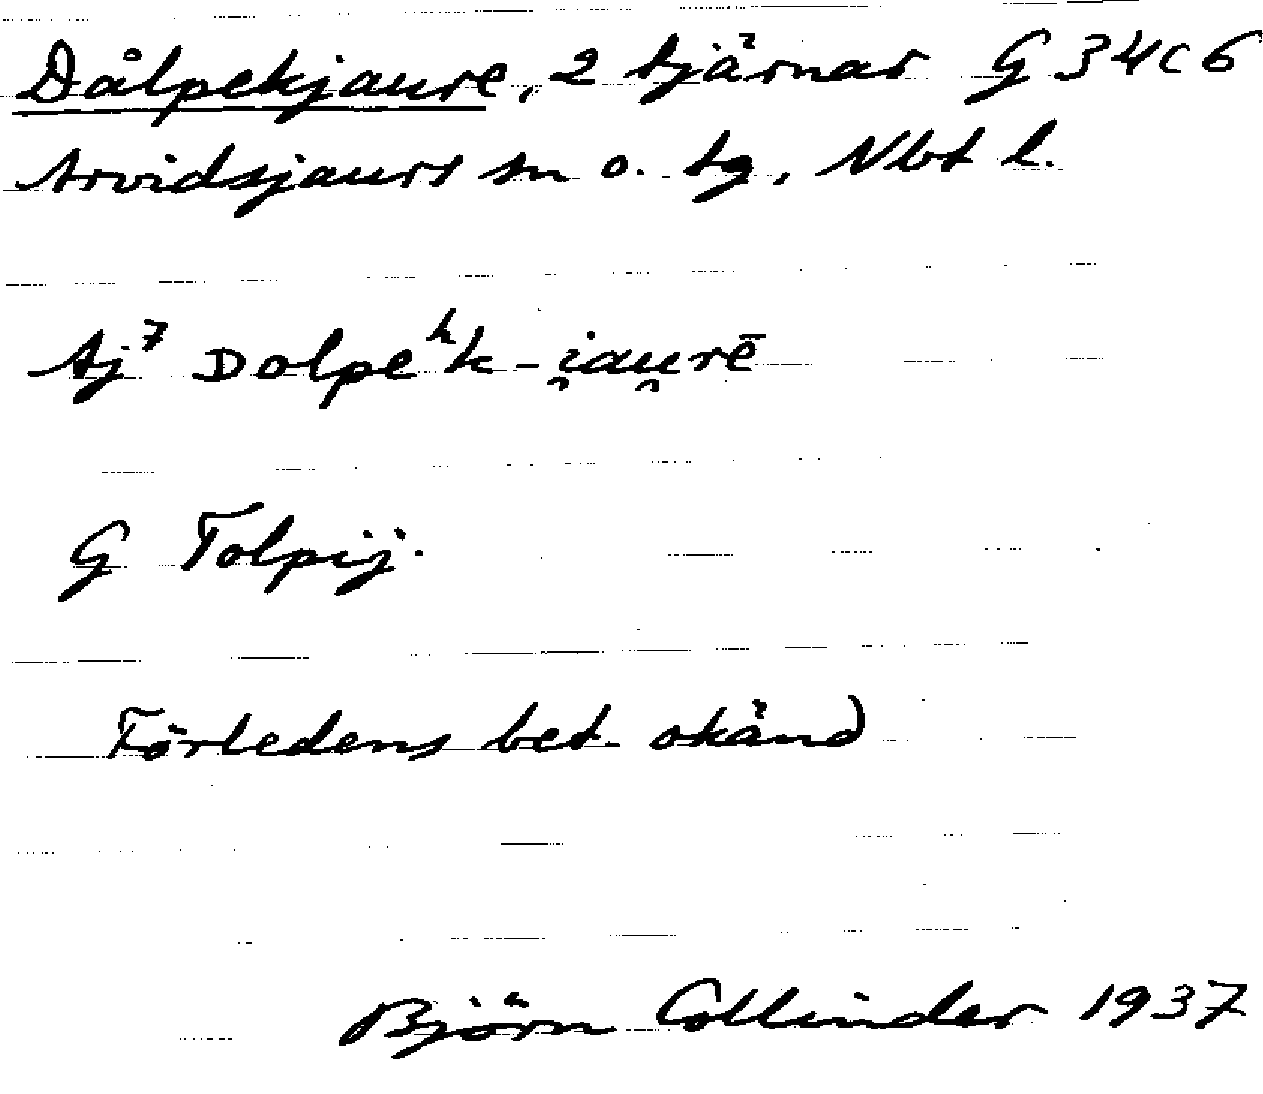 Dålpekjaure, 2 tjärnar G 34C6
Arvidsjaurs sn o. tg, Nbt l.
Aj⁷ ᴅolpeʰk-i̯au̯rē
G Tolpij.
Förledens bet. okänd
Björn Collinder 1937